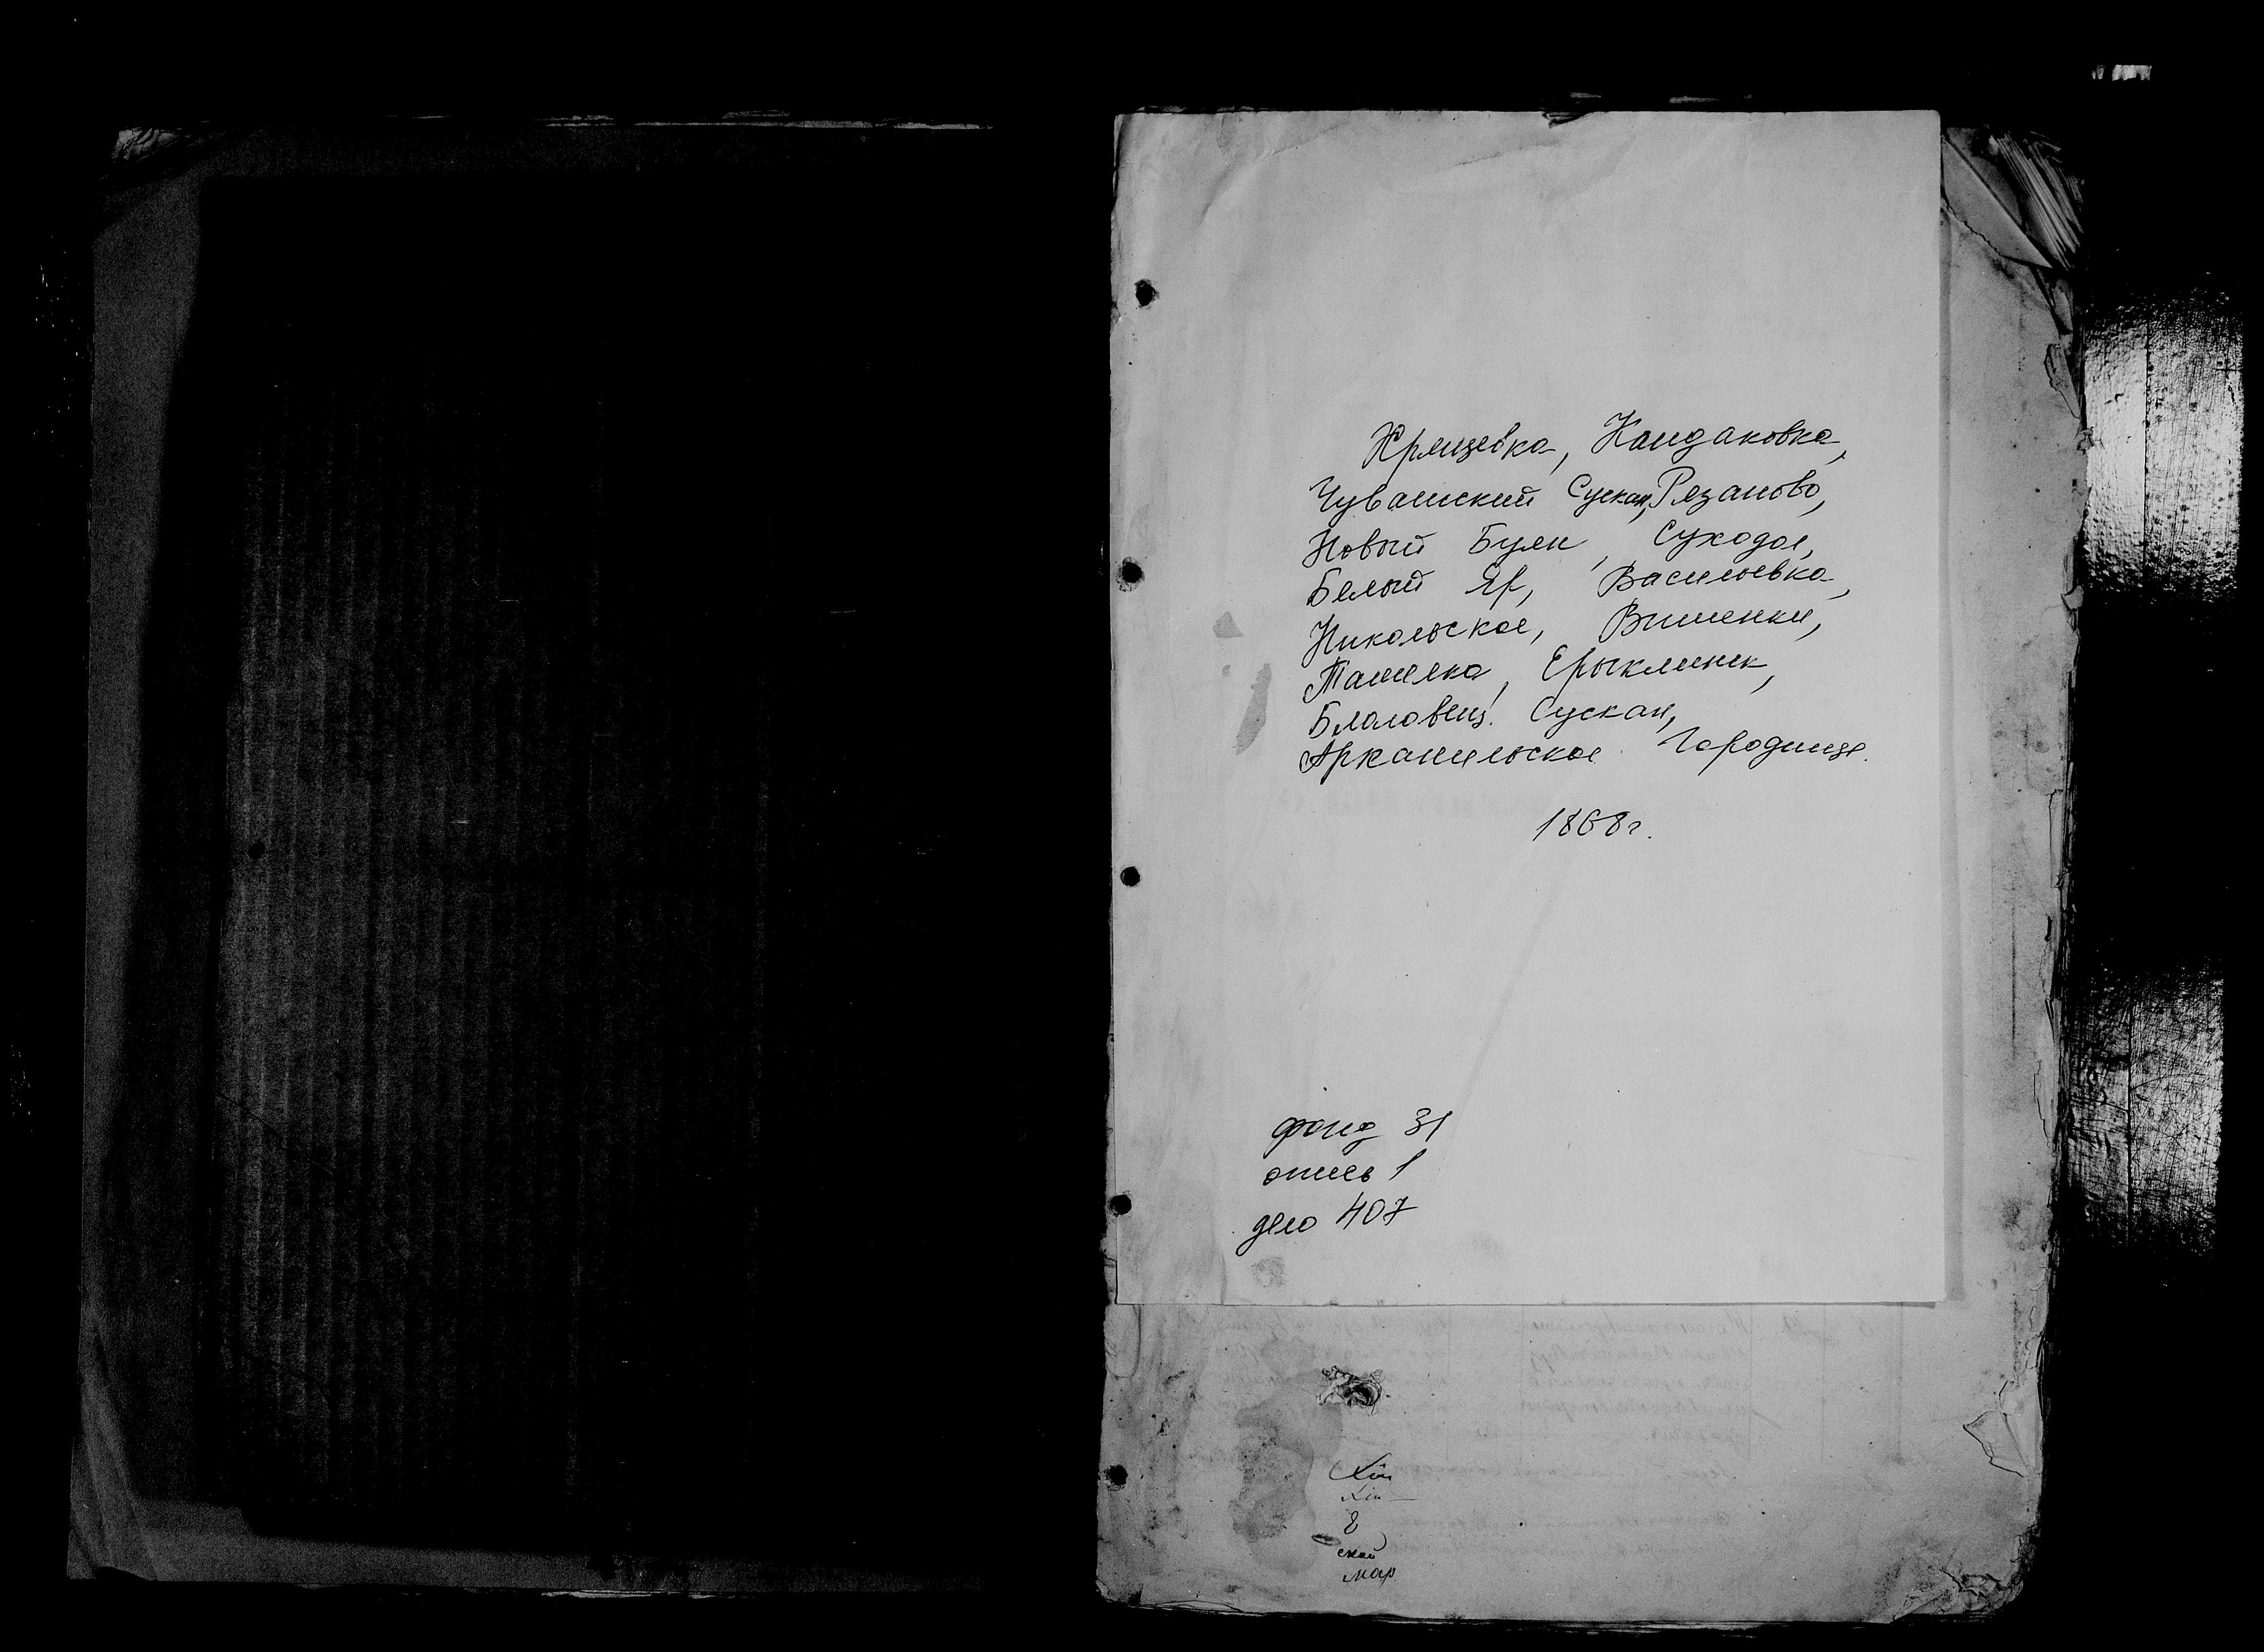 Хрящевка, Кандаковка,
Чувашский Сускан, Рязаново,
Новый Буян, Суходол,
Белый Яр, Васильевка,
Никольское, Вишенки,
Ташелка, Ерыклинск,
Благовещ. Сускан,
Арханельское Городище.
1868г.
фонд 31
опись 1
дело 407
ской
мар